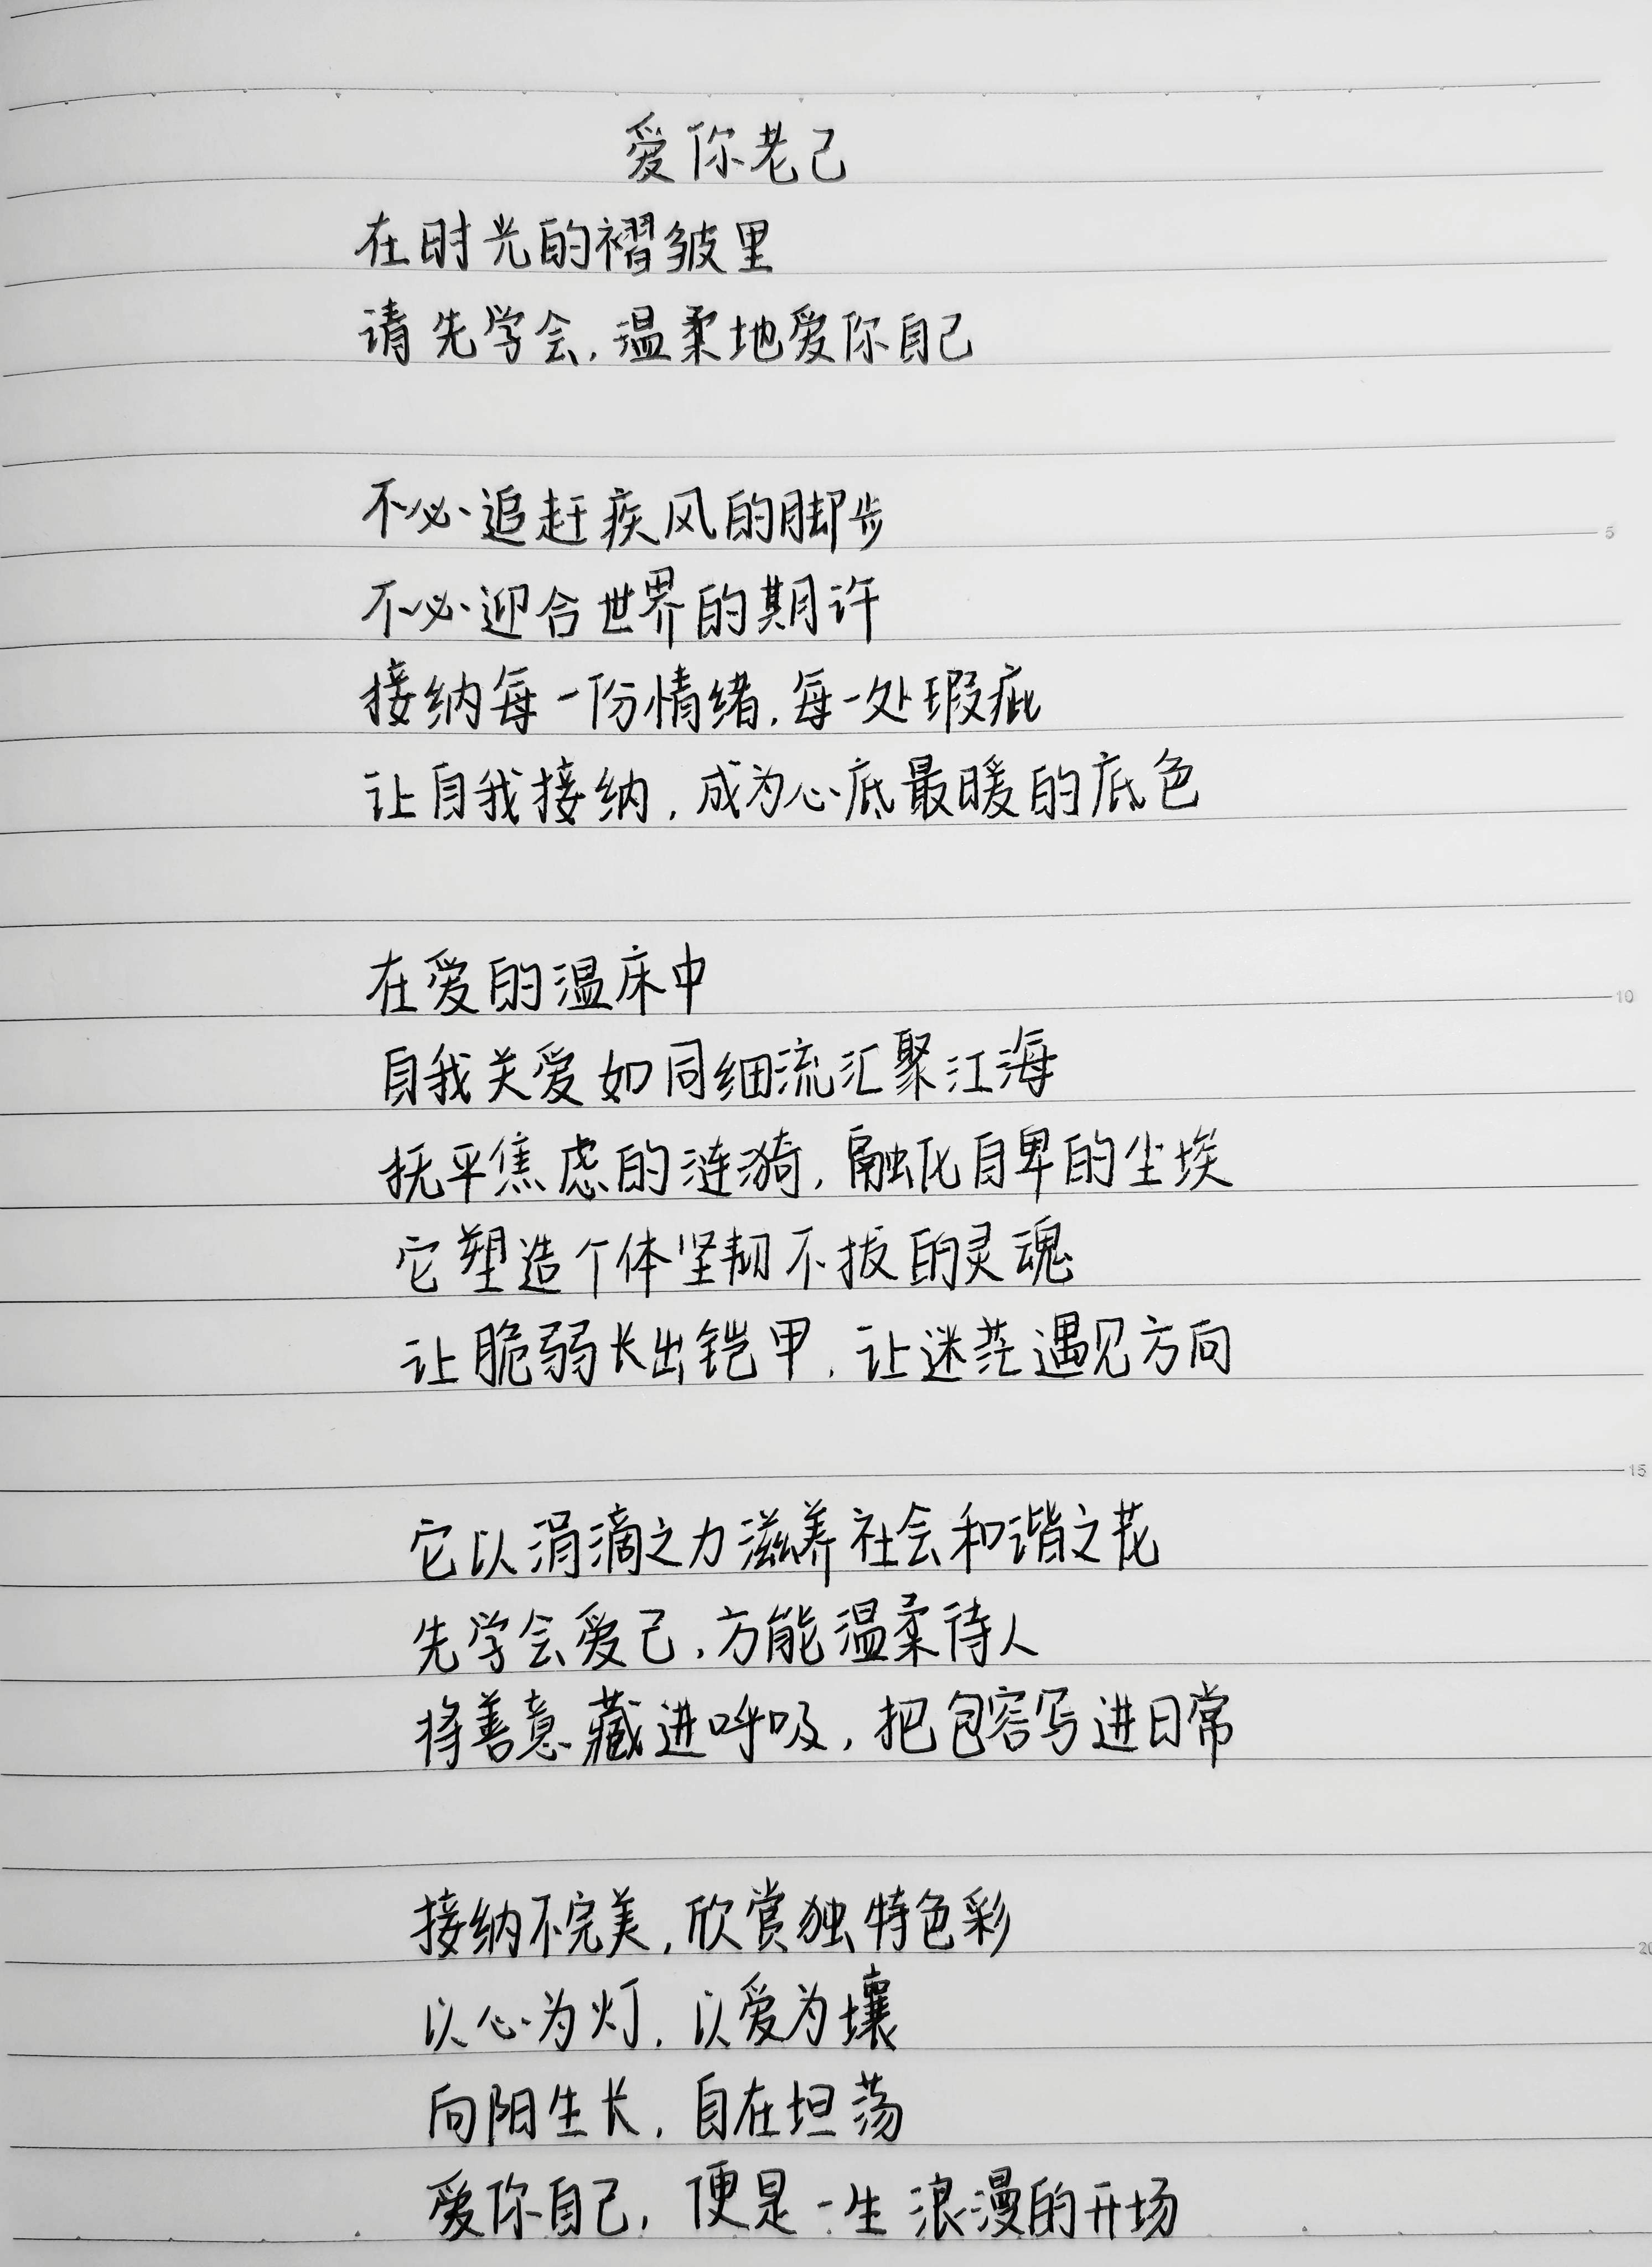 爱你老己
在时光的褶皱里
请先学会,温柔地爱你自己
不必追赶疾风的脚步
不必迎合世界的期许
接纳每一份情绪,每一处瑕疵
让自我接纳,成为心底最暖的底色
在爱的温床中
自我关爱如同细流汇聚江海
抚平焦虑的涟漪,融化自卑的尘埃
它塑造个体坚韧不拔的灵魂
让脆弱长出铠甲,让迷茫遇见方向
它以涓滴之力滋养社会和谐之花
先学会爱己,方能温柔待人
将善意藏进呼吸,把包容写进日常
接纳不完美,欣赏独特色彩
以心为灯,以爱为壤
向阳生长,自在坦荡
爱你自己,便是一生浪漫的开场
5
10
15
20